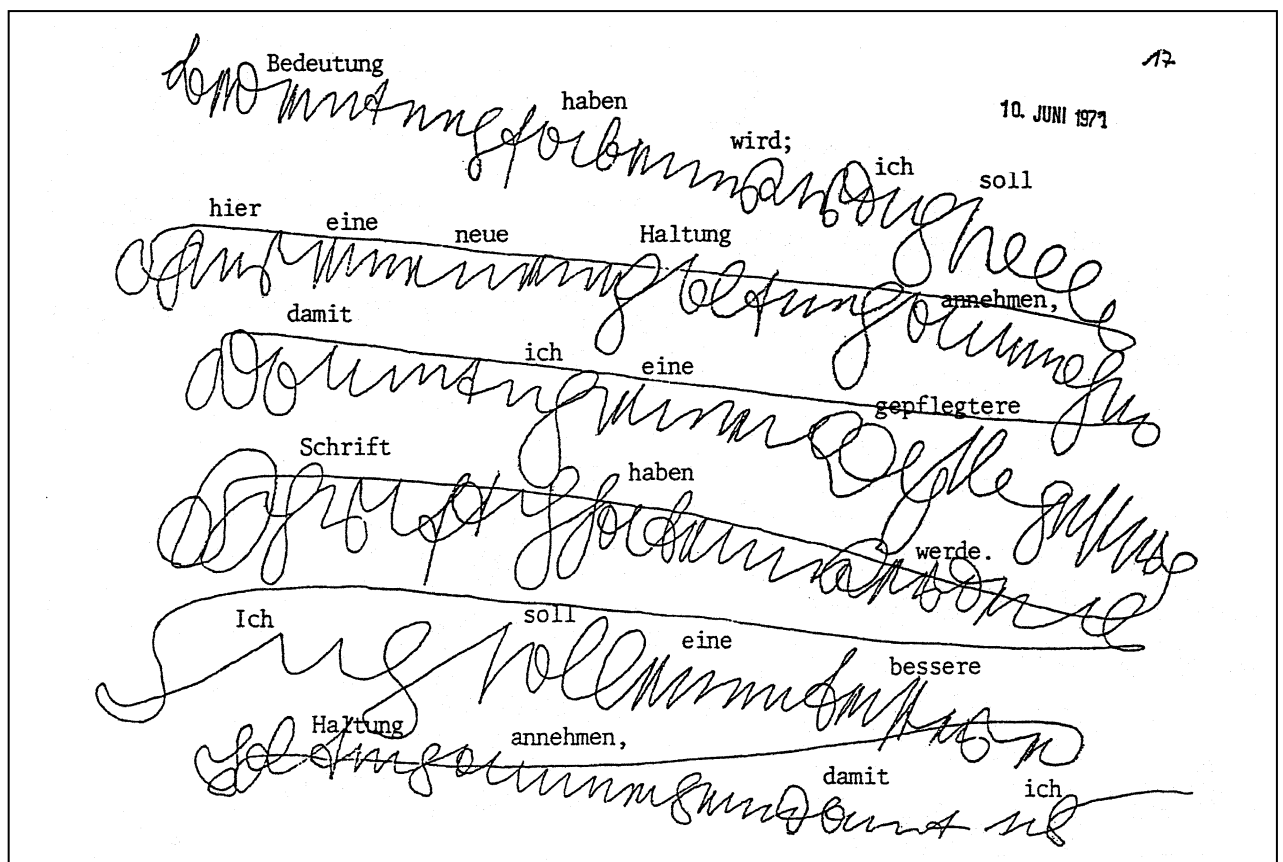 17
10. JUNI 1971
Bedeutung haben wird; ich soll
hier eine neue Haltung annehmen,
damit ich eine gepflegtere
Schrift haben werde.
Ich soll eine bessere
Haltung annehmen, damit ich